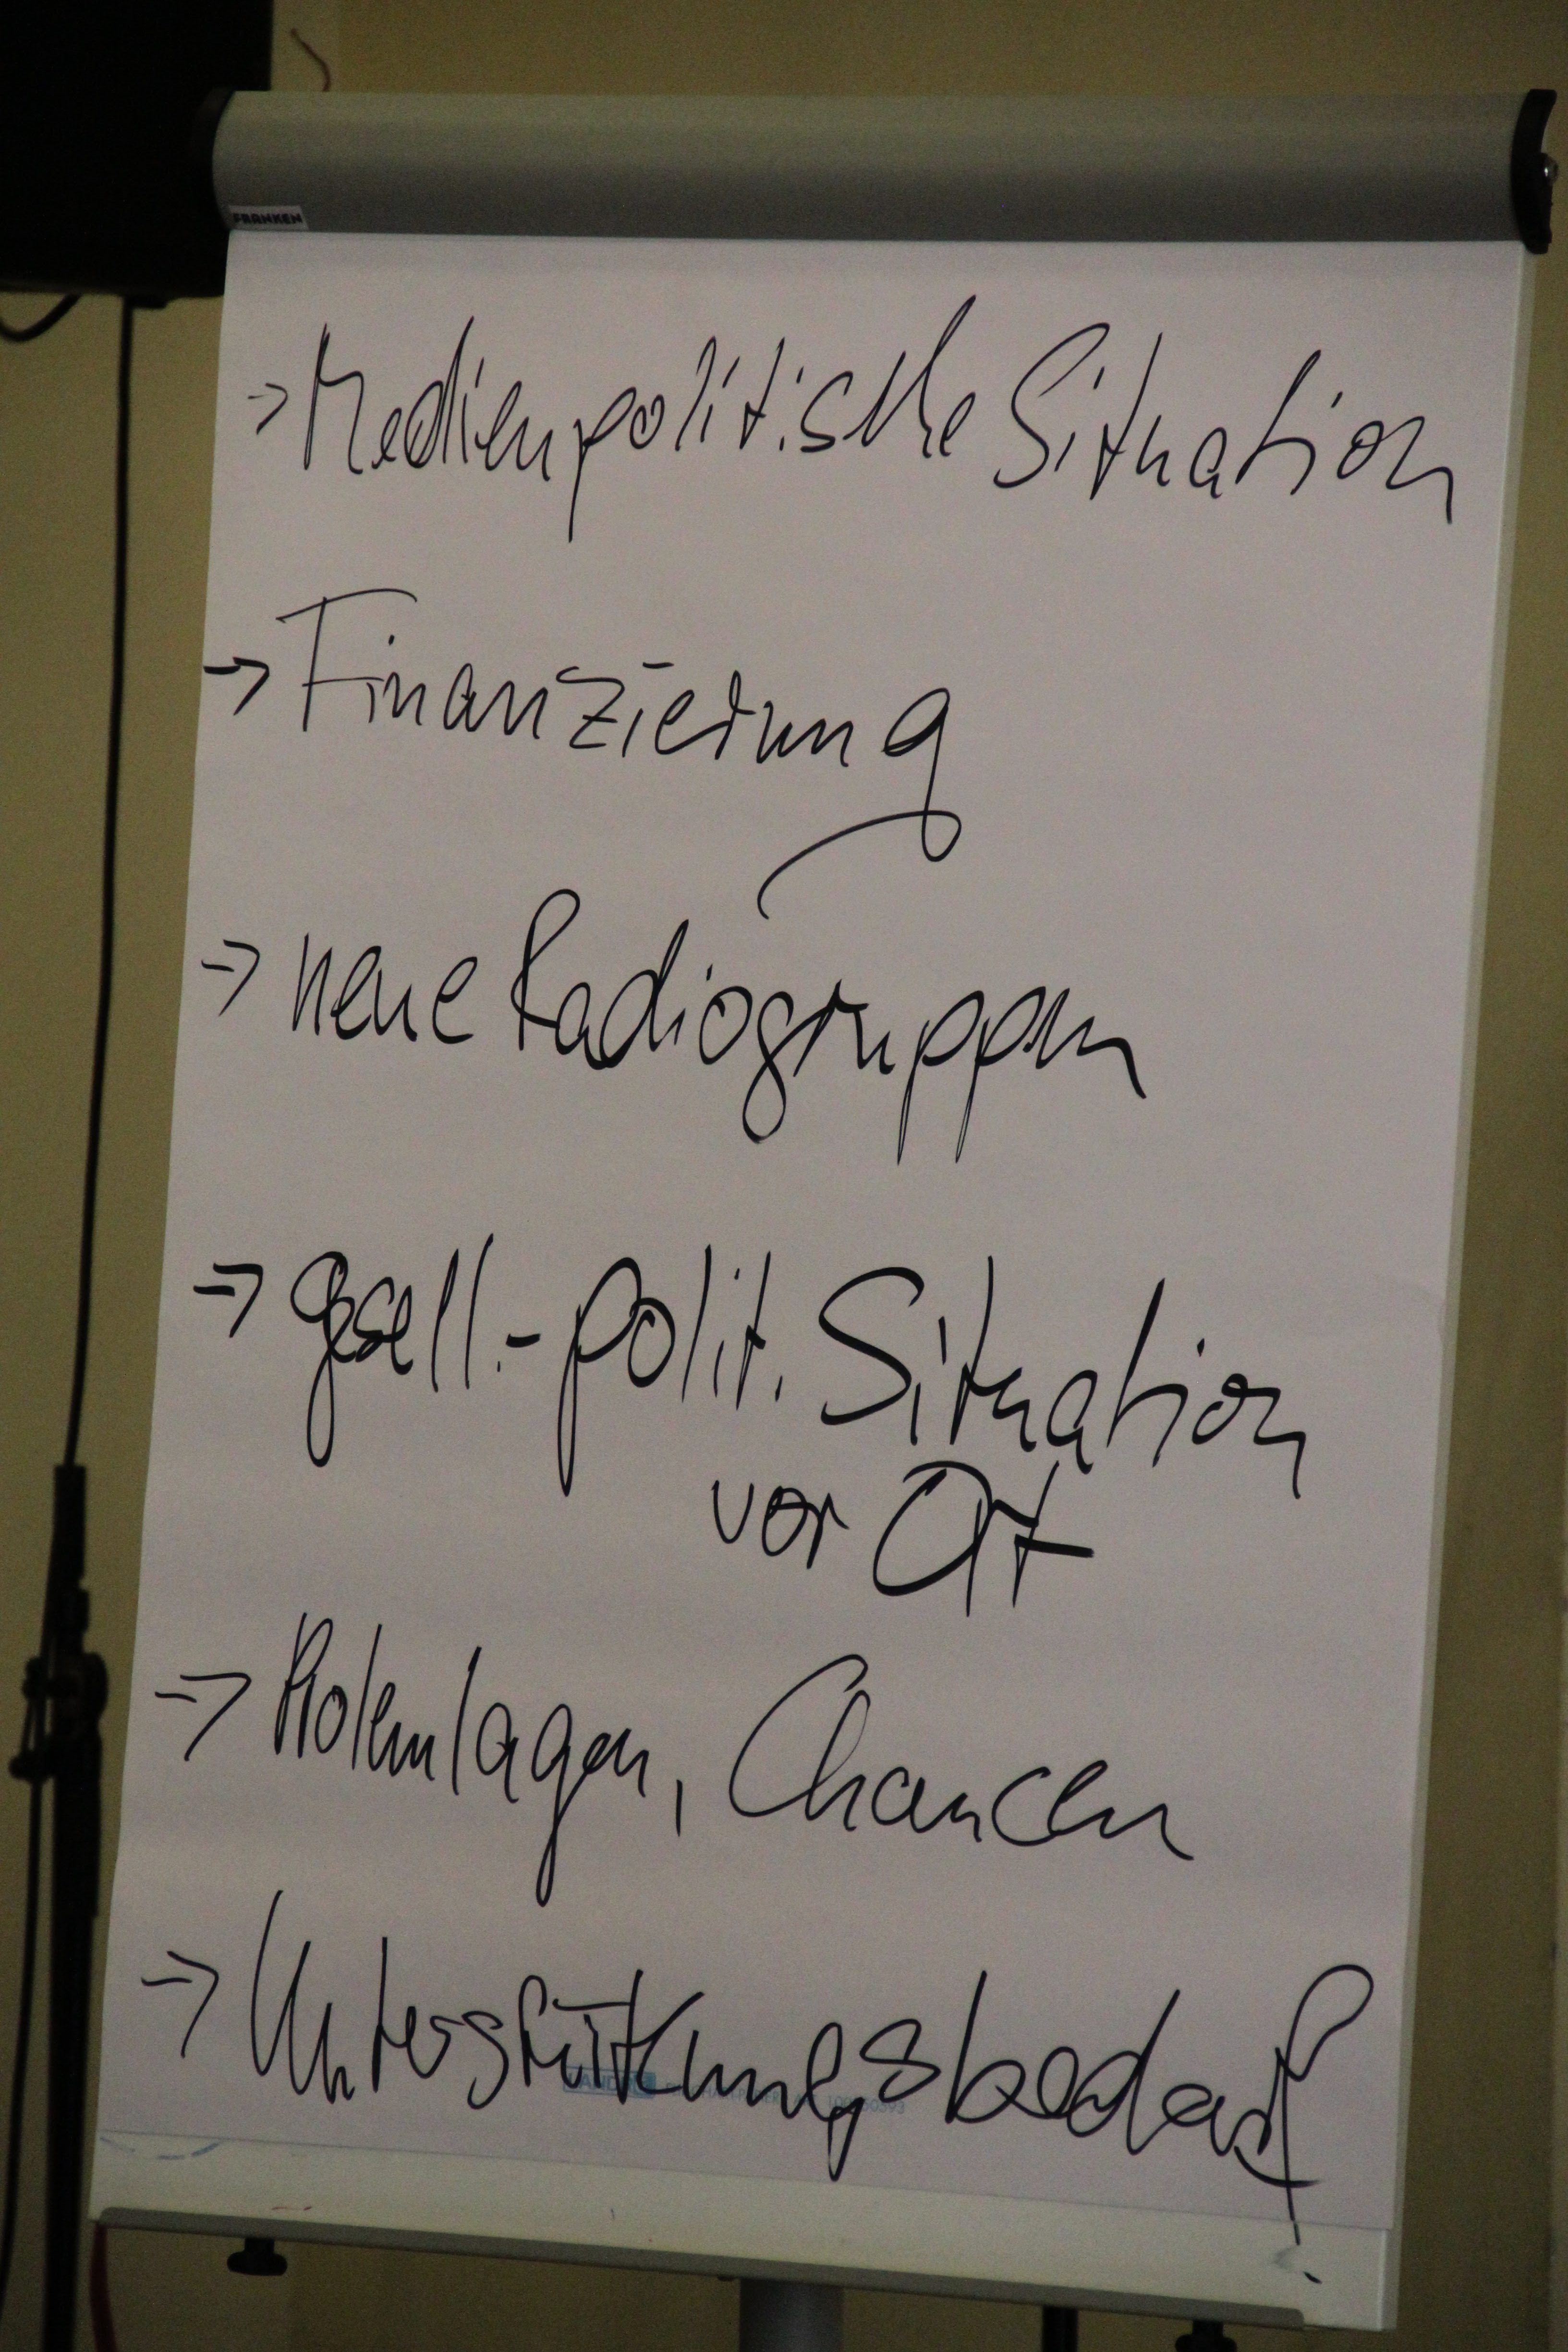 FRANKEN
→ Medienpolitische Situation
→ Finanzierung
→ neue Radiogruppen
→ gesell.-polit. Situation
vor Ort
→ Problemlagen, Chancen
→ Unterstützungsbedarf